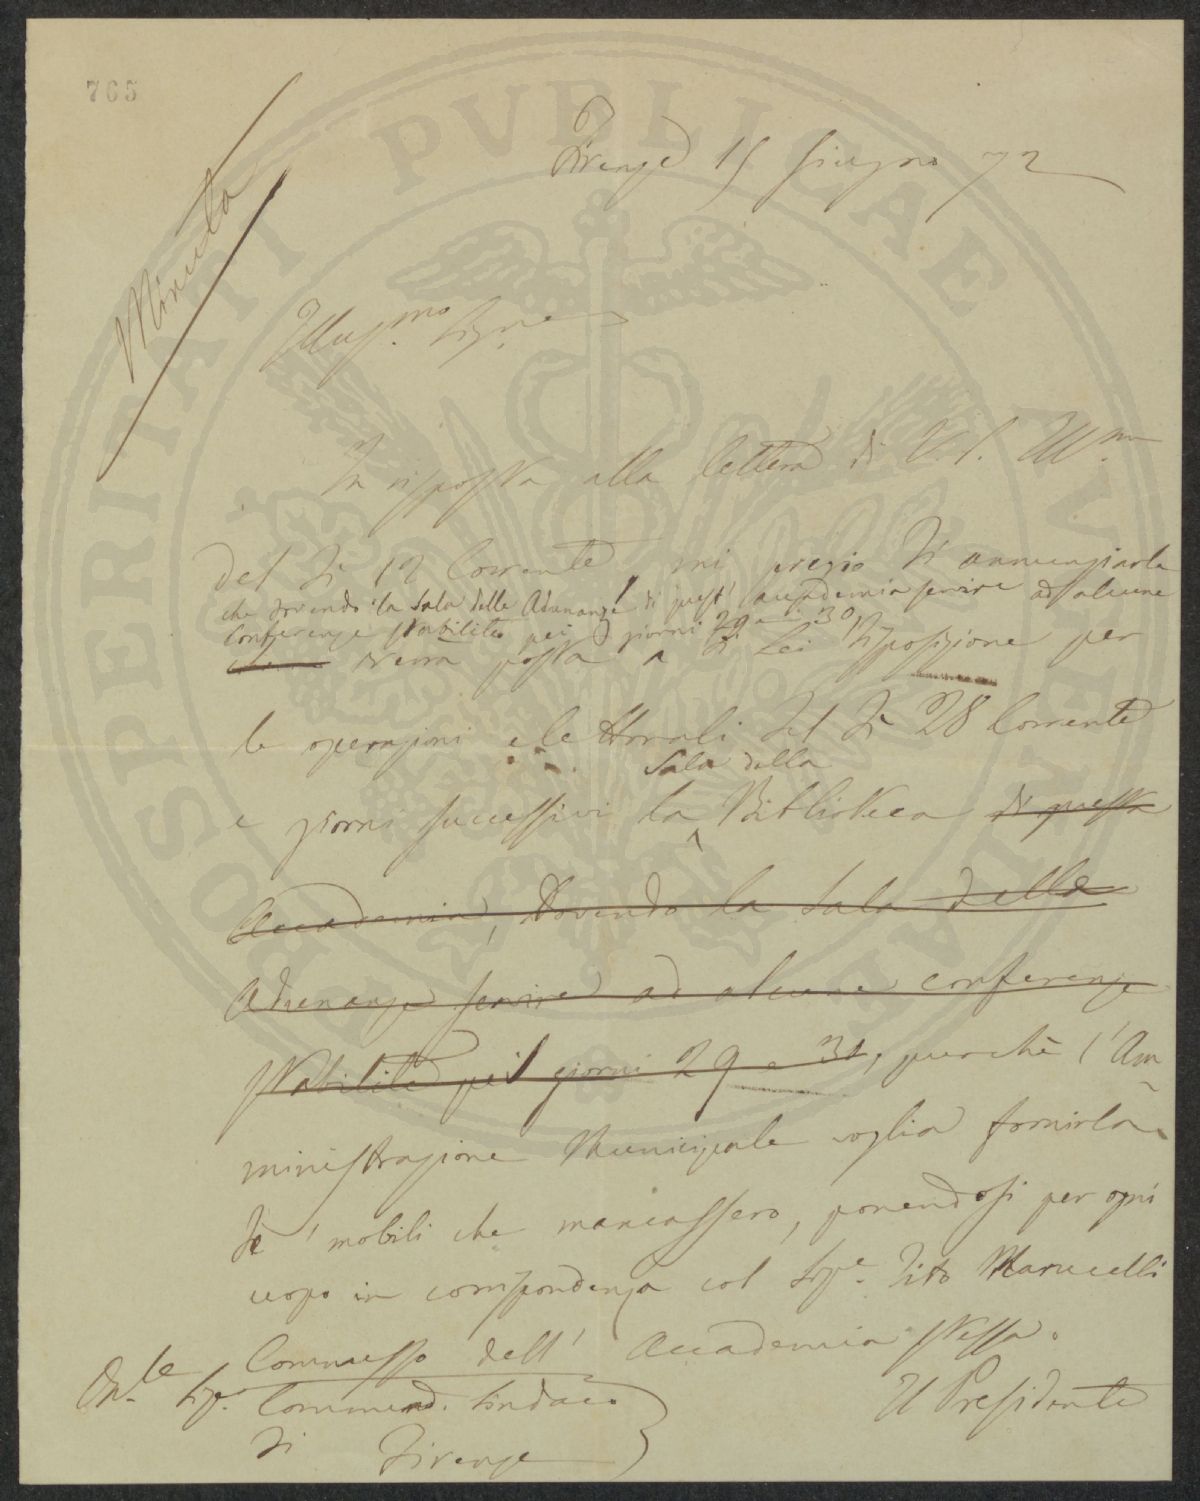 765
Minuta
Firenze 15 Giugno 72
Illus.mo Sig.re
In risposta alla lettera di V. S. Ill.ma
del dì 12 Corrente, mi pregio di annunziarla
che dovendo la Sala delle Adunanze di quest' accademia servire ad alcune
Conferenze stabilite pei giorni 29 e 30
verrà posta a di Lei disposizione per
le operazioni elettorali del dì 28 Corrente
e giorni successivi la Sala della Biblioteca di questa
Accademia, dovendo la Sala delle
Adunanze servire ad alcune conferenze
stabilite pei giorni 29 e 30, purchè l'Am
ministrazione Municipale voglia fornirla
de' mobili che mancassero, ponendosi per ogni
uopo in corrispondenza col Sig.e Tito Marucelli
Commesso dell' Accademia stessa.
Il Presidente
On.le Sig. Commend. Sindaco
di Firenze
PROSPERITATI PVBLICAE AVGENDAE